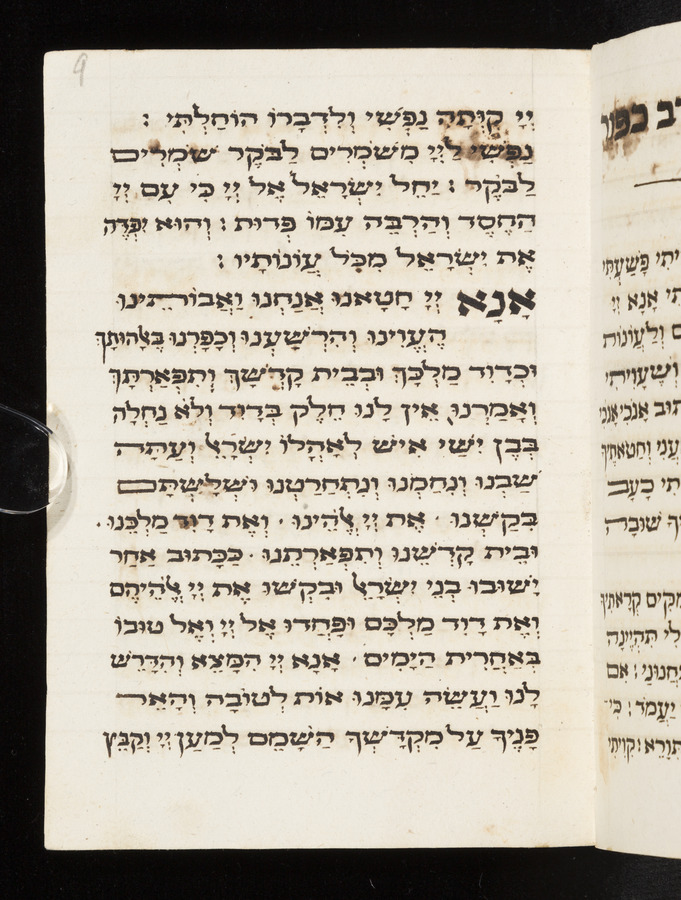 9
יְיָ קִוְּתָה נַפְשִׁי וְלִדְבָרוֹ הוֹחָלְתִּי :
נַפְשִׁי לַיְיָ מִשֹּׁמְרִים לַבֹּקֶר שֹׁמְרִים
לַבֹּקֶר : יַחֵל יִשְׂרָאֵל אֶל יְיָ כִּי עִם יְיָ
הַחֶסֶד וְהַרְבֵּה עִמּוֹ פְדוּת : וְהוּא יִפְדֶּה
אֶת יִשְׂרָאֵל מִכֹּל עֲוֹנוֹתָיו :
אָנָא יְיָ חָטָאנוּ אֲנַחְנוּ וַאֲבוֹתֵינוּ
הֶעֱוִינוּ וְהִרְשַׁעְנוּ וְכָפַרְנוּ בֶּאֱלָהוּתָךְ
וּכְדָוִד מַלְכָּךְ וּבְבֵית קָדְשָׁךְ וְתִפְאַרְתָּךְ
וְאָמַרְנוּ אֵין לָנוּ חֵלֶק בְּדָוִד וְלֹא נַחְלָה
בְּבֶן יִשַׁי אִישׁ לְאָהֳלוֹ יִשְׂרָאֵל וְעַתָּה
שַׁבְנוּ וְנִחַמְנוּ וְנִתְחָרַטְנוּ וּשְׁלָשְׁתָּם
בִּקַּשְׁנוּ · אֶת יְיָ אֱלֹהֵינוּ · וְאֶת דָוִד מַלְכֵּנוּ ·
וּבֵית קָדְשֵׁנוּ וְתִפְאַרְתֵּנוּ · כַּכָּתוּב אַחַר
יָשׁוּבוּ בְּנֵי יִשְׂרָאֵל וּבִקְשׁוּ אֶת יְיָ אֱלֹהֵיהֶם
וְאֶת דָוִד מַלְכָּם וּפָחֲדוּ אֶל יְיָ וְאֶל טוּבוֹ
בְּאַחֲרִית הַיָּמִים · אָנָא יְיָ הִמָּצֵא וְהִדָּרֵשׁ
לָנוּ וַעֲשֵׂה עִמָּנוּ אוֹת לְטוֹבָה וְהָאֵר
פָּנֶיךָ עַל מִקְדָּשְׁךָ הַשָּׁמֵם לְמַעַן יְיָ וְקַבֵּץ